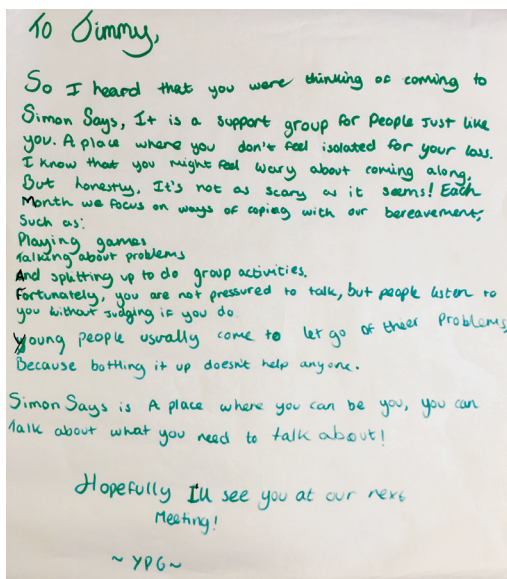 To Jimmy,
So I heard that you were thinking of coming to
Simon Says, It is a support group for People Just like
you. A place where you don't feel isolated for your loss.
I know that you might feel wary about coming along,
But honestly, It's not as scary as it seems! Each
Month we focus on ways of coping with our bereavement,
Such as:
Playing games
Talking about problems
And splitting up to do group activities.
Fortunately, you are not pressured to talk, but people listen to
you without judging if you do.
Young people usually come to let go of their Problems,
Because bottling it up doesn't help anyone.
Simon Says is A place where you can be you, you can
Talk about what you need to talk about!
Hopefully I'll see you at our next
Meeting!
~ YPG ~